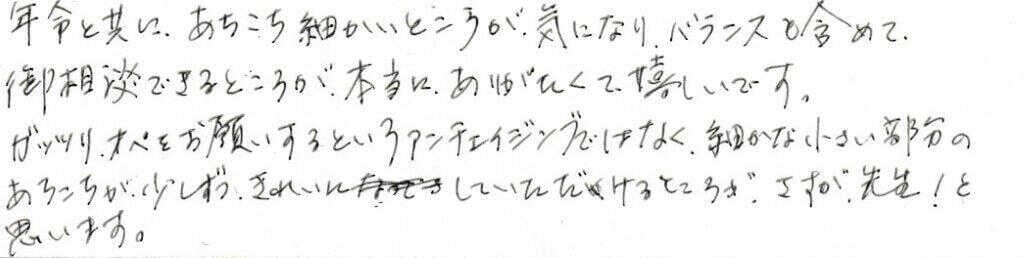 年令と共に、あちこち細かいところが、気になり、バランスも含めて、
御相談できるところが、本当に、ありがたくて、嬉しいです。
ガッツリ、オペをお願いするというアンチエイジングではなく、細かな小さい部分の
あちこちが、少しずつ、きれいにしていただけるところが、さすが、先生！と
思います。